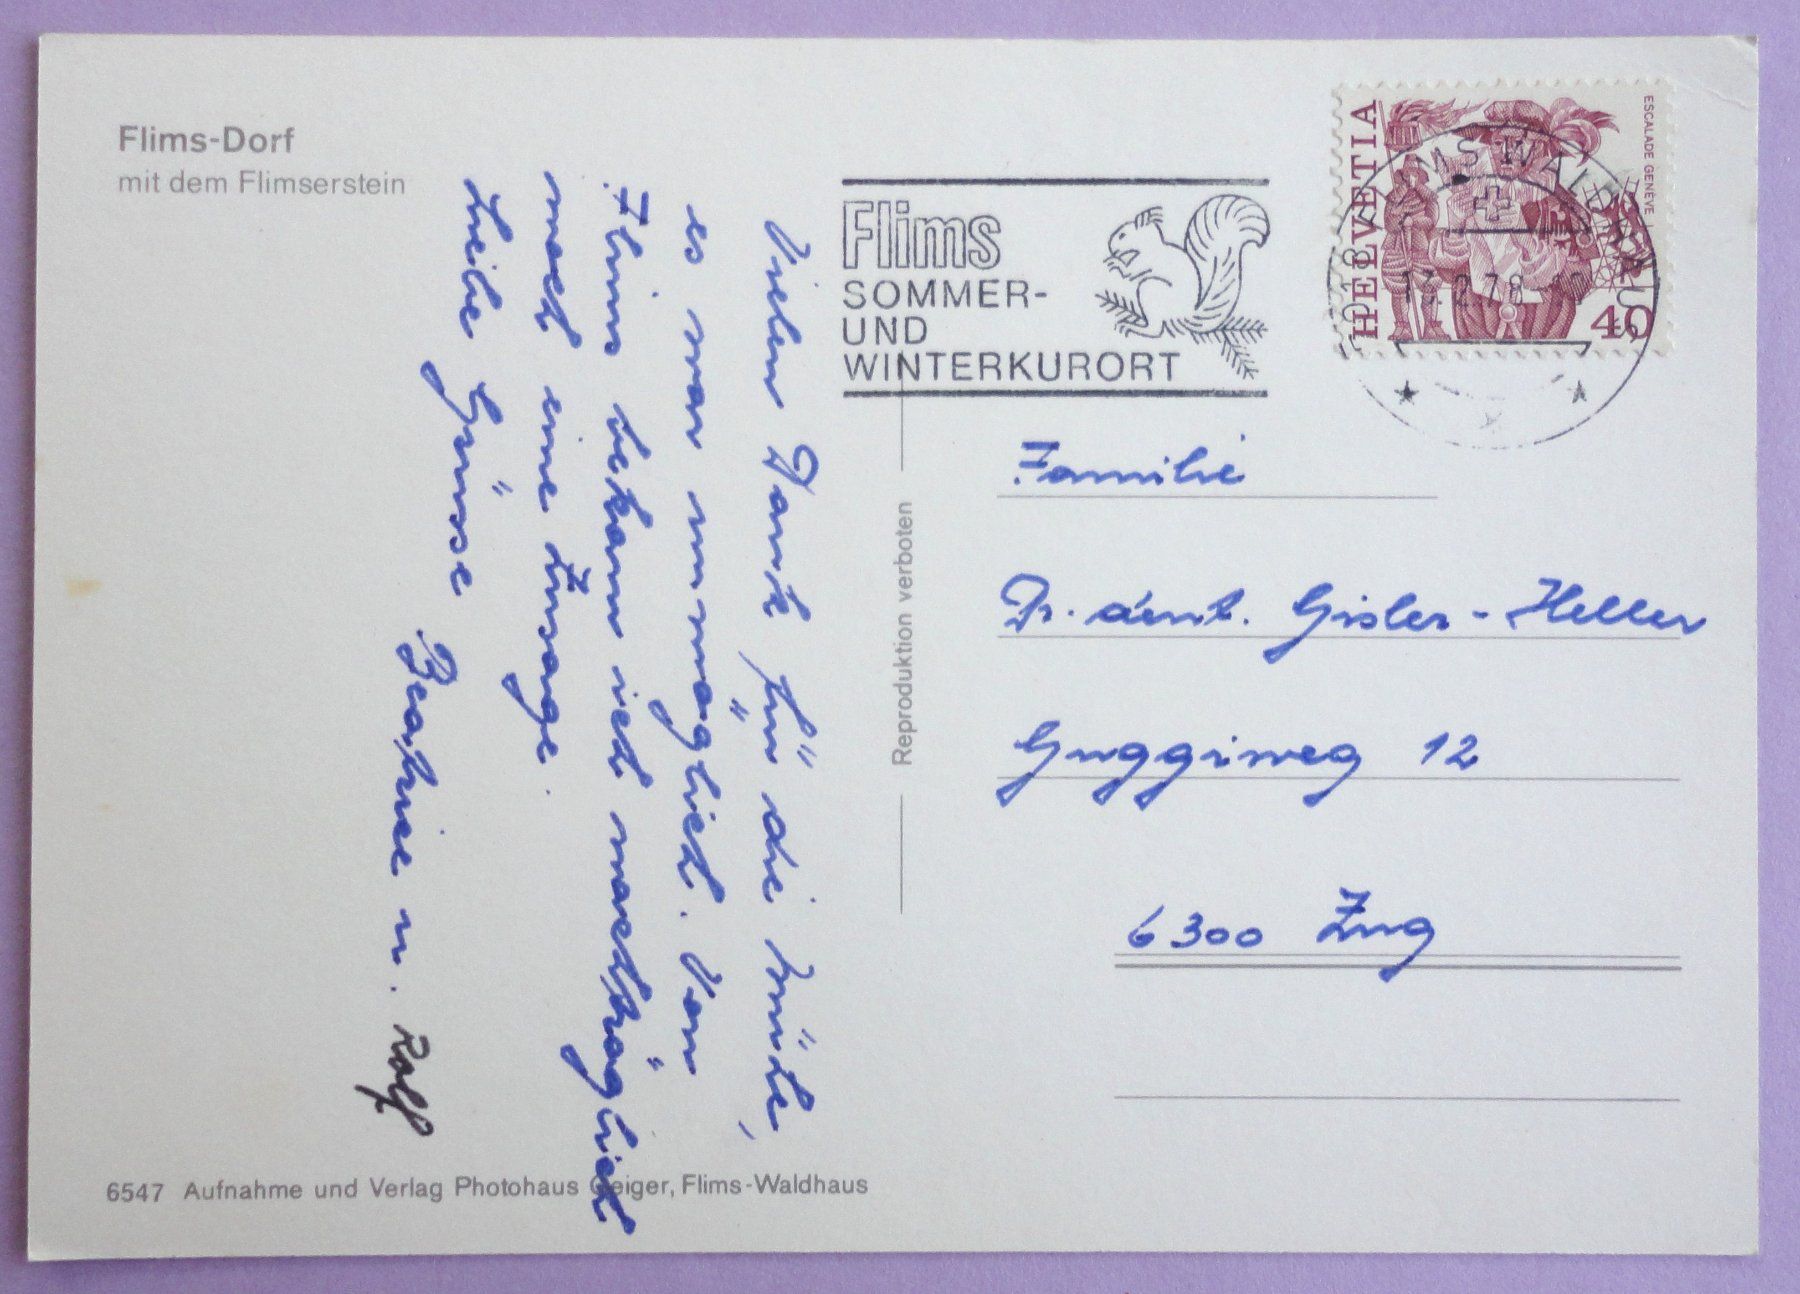 Flims-Dorf
mit dem Flimserstein
Vielen Dank für die Mühle,
es war unmöglich. Von
Flims bekam ich nachträglich
noch eine Zusage.
Liebe Grüsse
Beatrice u. Rolf
6547 Aufnahme und Verlag Photohaus Geiger, Flims-Waldhaus
Reproduktion verboten
Flims
SOMMER-
UND
WINTERKURORT
HELVETIA
ESCALADE GENÈVE
40
Familie
Dr. dent. Gisler-Heller
Guggiweg 12
6300 Zug